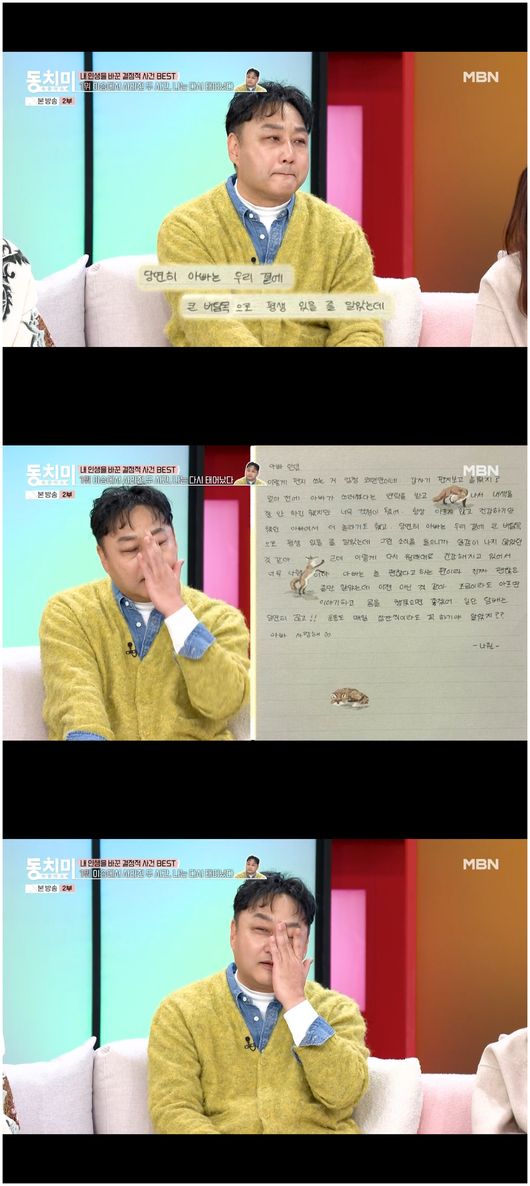 동치미
내 인생을 바꾼 결정적 사건 BEST
1위 이승에서 사라진 두 시간, 나는 다시 태어났다
본 방송 2부
MBN
당연히 아빠는 우리 곁에
큰 버팀목으로 평생 있을 줄 알았는데
동치미
내 인생을 바꾼 결정적 사건 BEST
1위 이승에서 사라진 두 시간, 나는 다시 태어났다
본 방송 2부
MBN
아빠 안녕
이렇게 편지 쓰는 거 엄청 오랜만이네 갑자기 편지보고 놀랬지?
얼마 전에 아빠가 쓰러졌다는 연락을 받고 나서 내색을
잘 안 하긴 했지만 너무 걱정이 됐어. 항상 이렇게 밝고 건강하기만
했던 아빠여서 더 놀라기도 했고 당연히 아빠는 우리 곁에 큰 버팀목
으로 평생 있을 줄 알았는데 그런 소식을 들으니까 실감이 나지 않았던
것 같아 근데 이렇게 다시 원래대로 건강해지고 있어서
너무 아빠는 늘 괜찮다고 하는 편이라 진짜 괜찮은
줄만 알았는데 이젠 아닌 것 같아. 조금이라도 아프면
이야기하고 몸을 챙겼으면 좋겠어 일단 담배는
당연히 끊고!! 운동도 매일 잠깐이라도 꼭 하기야 알았지??
아빠 사랑해
-나원-
동치미
내 인생을 바꾼 결정적 사건 BEST
1위 이승에서 사라진 두 시간, 나는 다시 태어났다
본 방송 2부
MBN